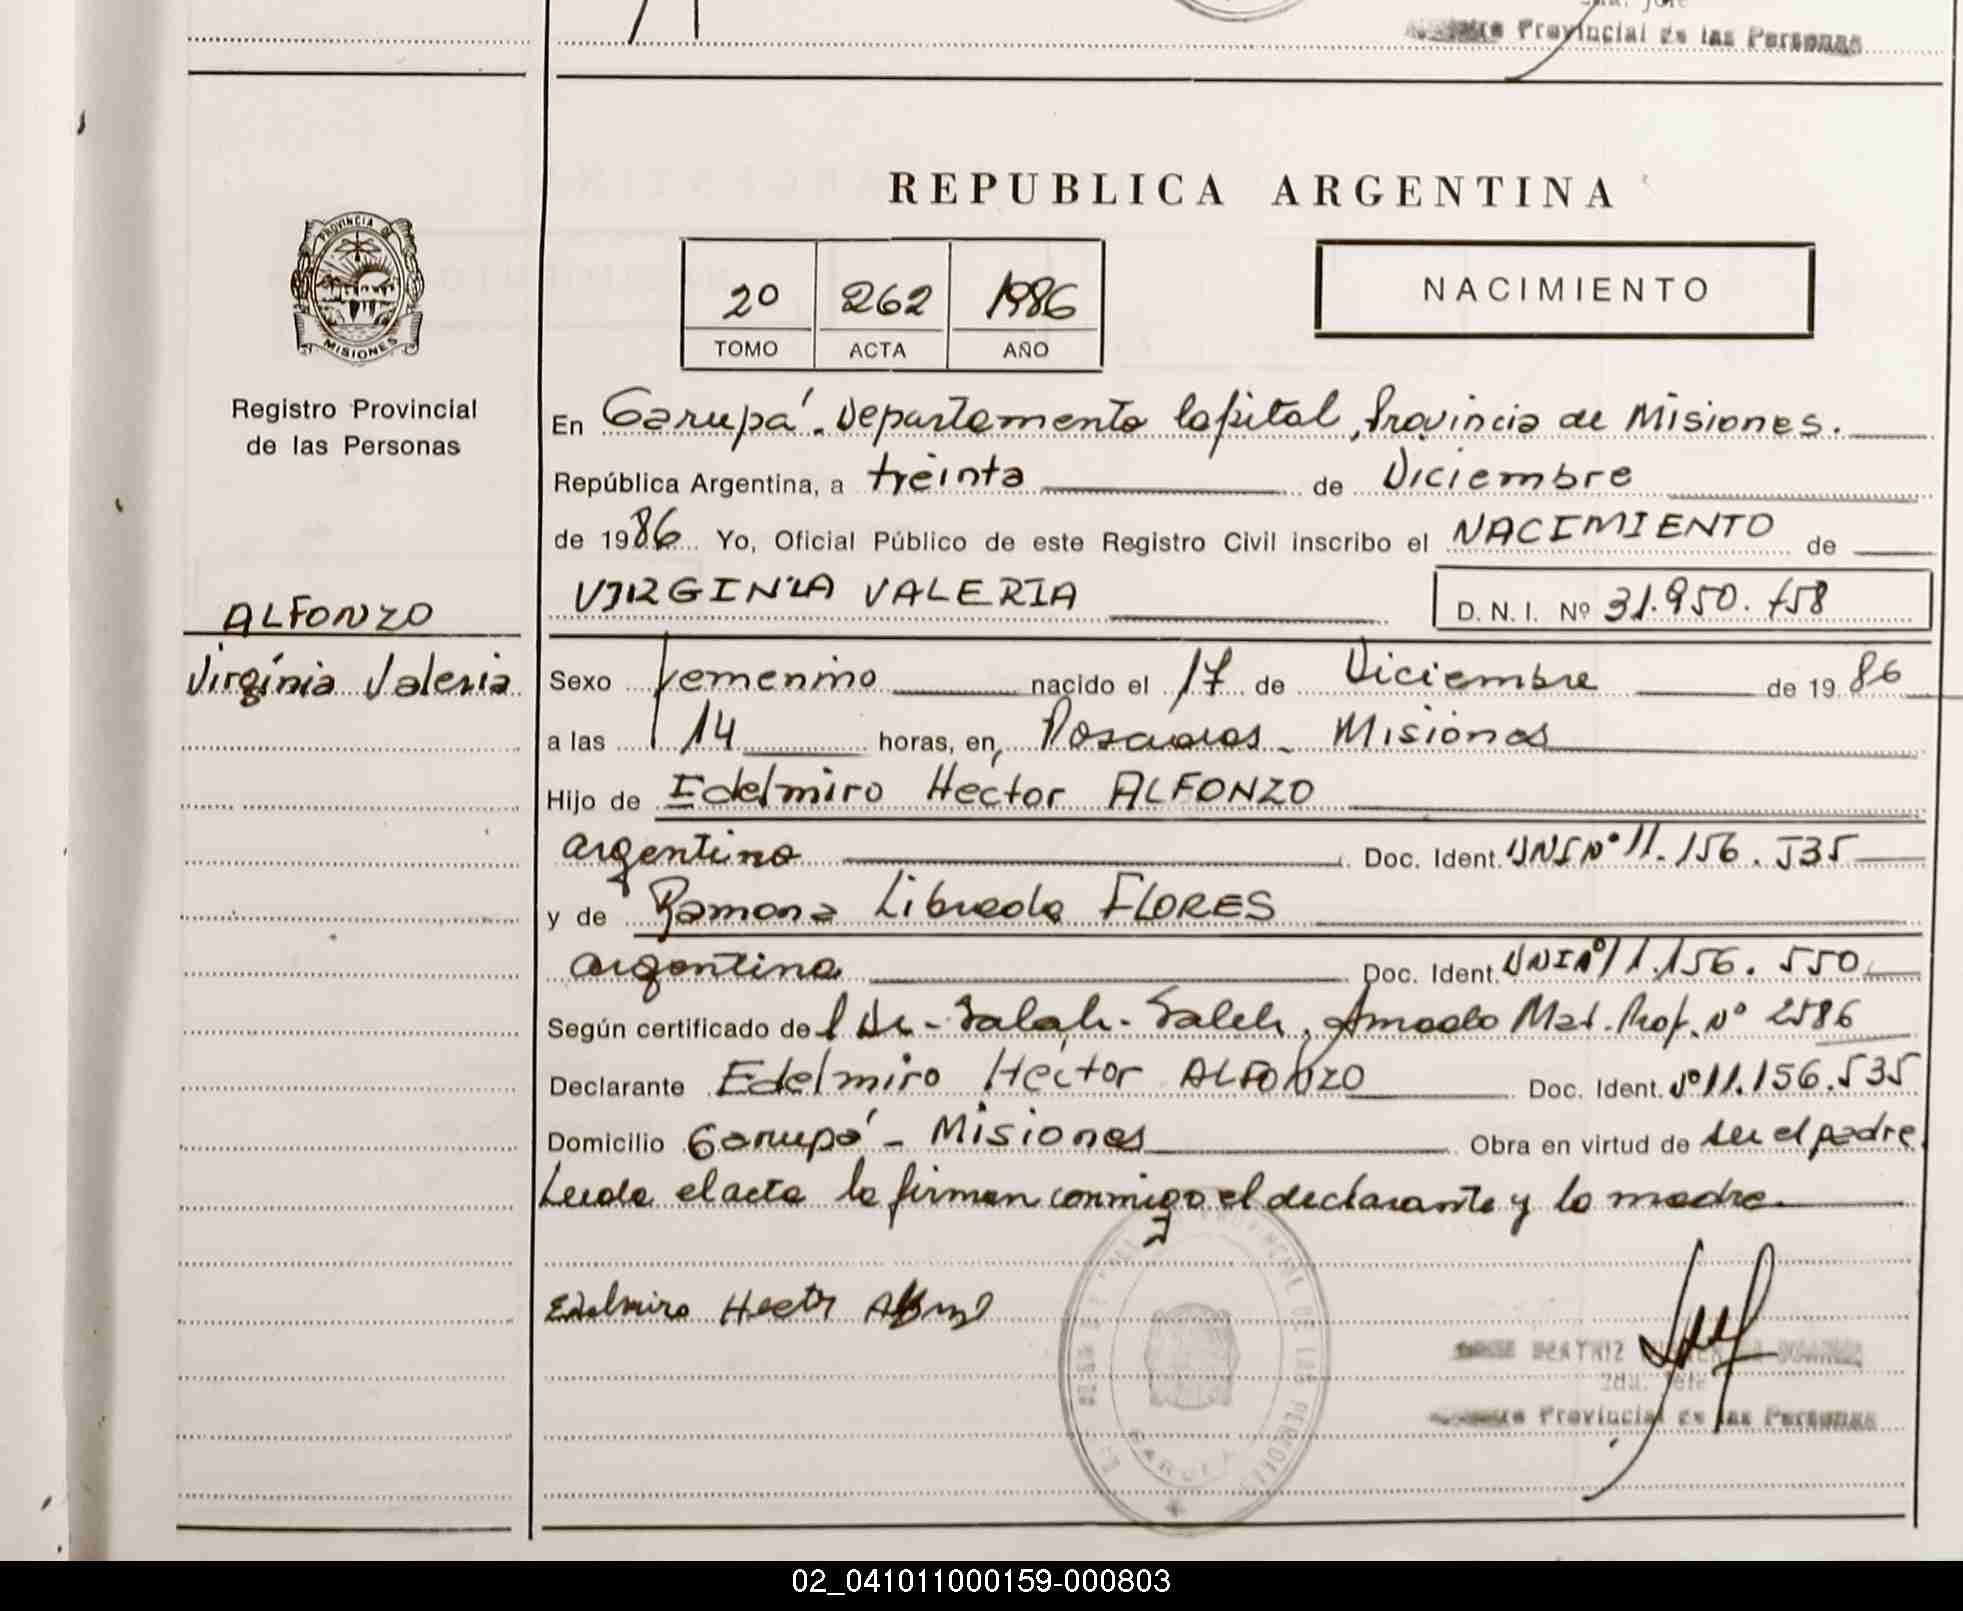 Provincial de las Personas
REPUBLICA ARGENTINA
PROVINCIA DE
MISIONES
Registro Provincial
de las Personas
2º 262 1986
TOMO ACTA AÑO
NACIMIENTO
En Garupá. Departamento Capital, Provincia de Misiones.
República Argentina, a treinta de Diciembre
de 1986 Yo, Oficial Público de este Registro Civil inscribo el NACIMIENTO de
VIRGINIA VALERIA D. N. I. Nº 31.950.758
ALFONZO
Virginia Valeria
Sexo femenino nacido el 17 de Diciembre de 19 86
a las 14 horas, en, Posadas - Misiones
Hijo de Edelmiro Hector ALFONZO
argentino Doc. Ident. DNI Nº 11.156.535
y de Ramona Librada FLORES
argentina Doc. Ident. DNI Nº 11.156.550
Según certificado de l Dr - Salah - Saleh, Amado Mat. Prof. Nº 2586
Declarante Edelmiro Hector ALFONZO Doc. Ident. Nº 11.156.535
Domicilio Garupá - Misiones Obra en virtud de ser el padre.
Leida el acta la firman conmigo el declarante y la madre.
Edelmiro Hector Alfonzo
BEATRIZ
2da. Jefe
Provincial de las Personas
GARUPA
02_041011000159-000803